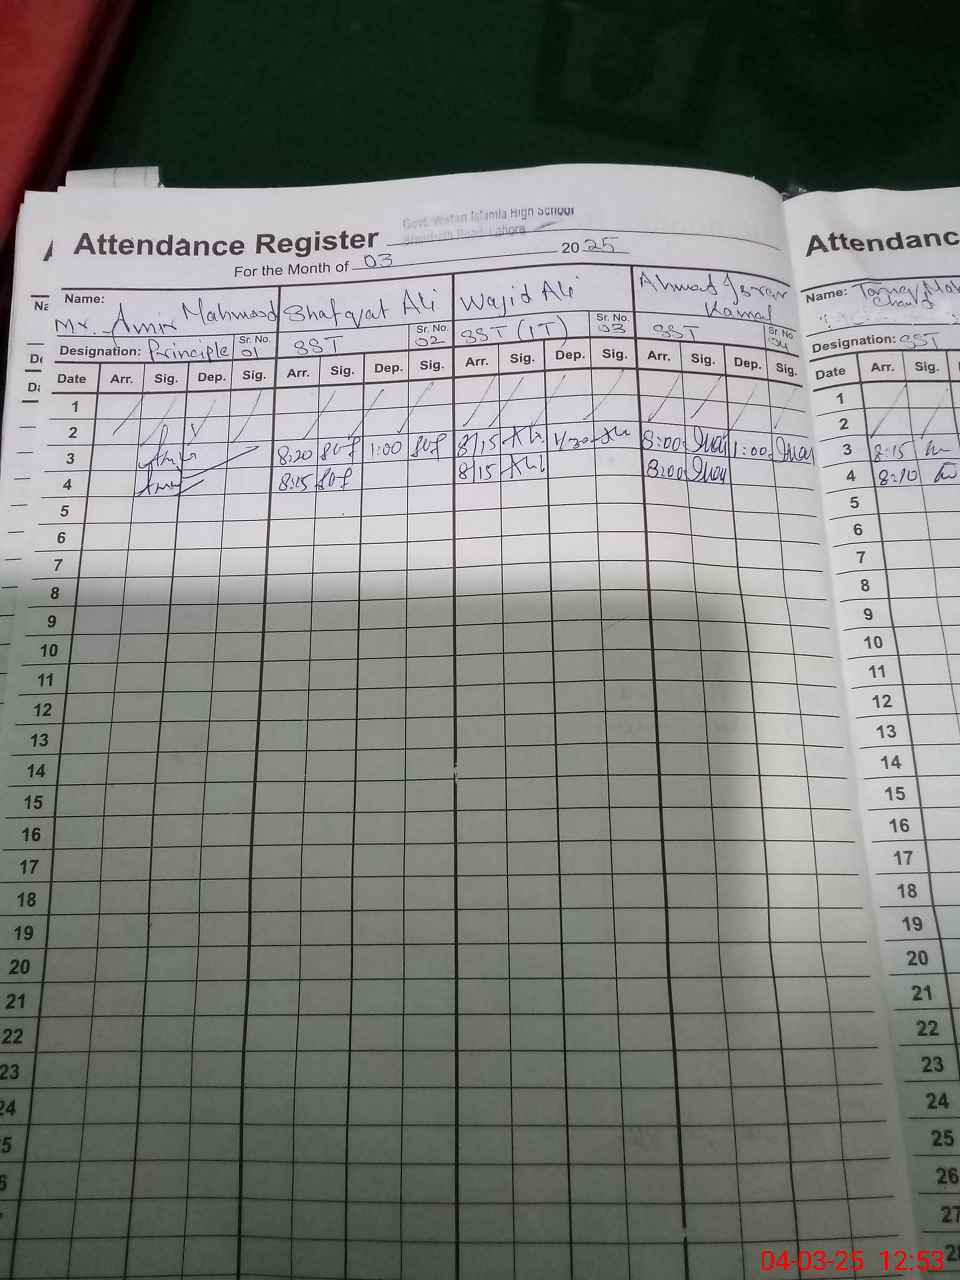 Govt. Watan Islamia High School
Road, Lahore
Attendance Register
For the Month of 03 2025
Name: Mr. Amir Mahmood Shafqat Ali Wajid Ali Ahmad Kamal
Designation: Principle Sr. No. 01 SST Sr. No. 02 SST (IT) Sr. No. 03 SST Sr. No. 04
Date Arr. Sig. Dep. Sig. Arr. Sig. Dep. Sig. Arr. Sig. Dep. Sig. Arr. Sig. Dep. Sig.
1
2
3 8:20 1:00 8/15 1/30 8:00 1:00
4 8:15 8/15 8:00
5
6
7
8
9
10
11
12
13
14
15
16
17
18
19
20
21
22
23
24
5
6
Attendanc
Name:
Designation: SST
Date Arr. Sig.
1
2
3 8:15
4 8:10
5
6
7
8
9
10
11
12
13
14
15
16
17
18
19
20
21
22
23
24
25
26
27
28
04-03-25 12:53